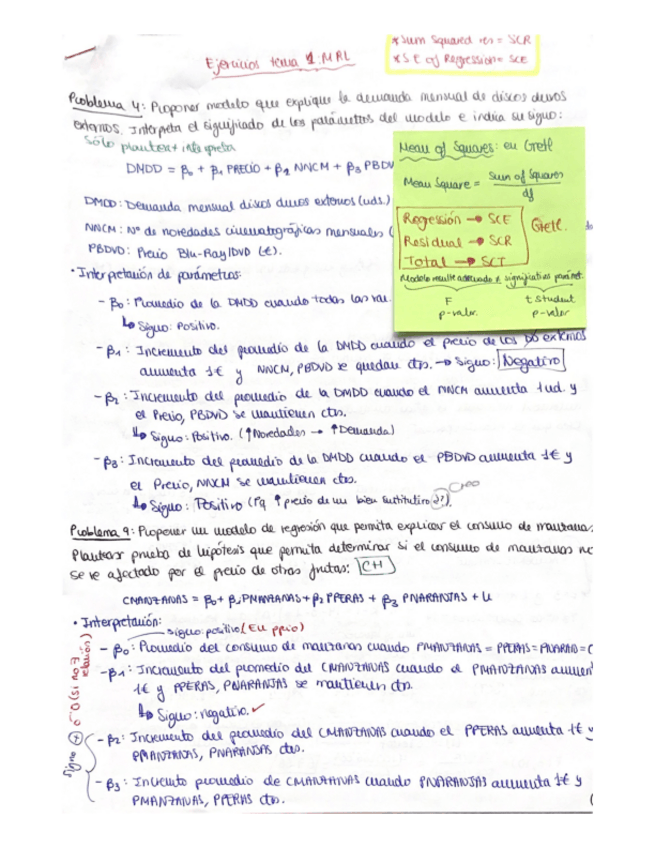 * Sum Squared res = SCR
* S E of Regression = SCE
Ejercicios tema 1: MRL
Problema 4: Proponer modelo que explique la demanda mensual de discos duros
externos. Interpreta el significado de los parámetros del modelo e indica su signo:
Sólo plantear + interpretar
DMDD = β0 + β1 PRECIO + β2 NNCM + β3 PBDV
DMDD: Demanda mensual discos duros externos (uds.)
NNCM: Nº de novedades cinematográficas mensuales (
PBDVD: Precio Blu-Ray/DVD (€).
Mean of Squares: en Gretl
Mean Square = Sum of Squares
df
Regresión → SCE
Residual → SCR
Total → SCT
Gretl.
Modelo resulte adecuado ≠ significativos parámet.
F
p-valor.
t student
p-valor
• Interpretación de parámetros:
- β0: Promedio de la DMDD cuando todas las va
↳ Signo: Positivo.
- β1: Incremento del promedio de la DMDD cuando el precio de los DD externos
aumenta 1€ y NNCM, PBDVD se quedan ctes. → Signo: Negativo
- β2: Incremento del promedio de la DMDD cuando el NNCM aumenta 1 ud. y
el Precio, PBDVD se mantienen ctes.
↳ Signo: Positivo. (↑Novedades → ↑Demanda)
- β3: Incremento del promedio de la DMDD cuando el PBDVD aumenta 1€ y
el Precio, NNCM se mantienen ctes.
↳ Signo: Positivo (Pq ↑ precio de un bien sustitutivo ¿?). Creo
Problema 9: Proponer un modelo de regresión que permita explicar el consumo de manzanas.
Plantear prueba de hipótesis que permita determinar si el consumo de manzanas no
se ve afectado por el precio de otras frutas: CH
CMANZANAS = β0 + β1 PMANZANAS + β2 PPERAS + β3 PNARANJAS + U
• Interpretación:
signo: positivo (En ppio)
- β0: Promedio del consumo de manzanas cuando PMANZANAS = PPERAS = PNARAN = 0
- β1: Incremento del promedio del CMANZANAS cuando el PMANZANAS aumen
1€ y PPERAS, PNARANJAS se mantienen ctes.
↳ Signo: negativo. ✓
Signo (+) ó 0 (si no ∃ relación)
- β2: Incremento del promedio del CMANZANAS cuando el PPERAS aumenta 1€ y
PMANZANAS, PNARANJAS ctes.
- β3: Incremento promedio de CMANZANAS cuando PNARANJAS aumenta 1€ y
PMANZANAS, PPERAS ctes.